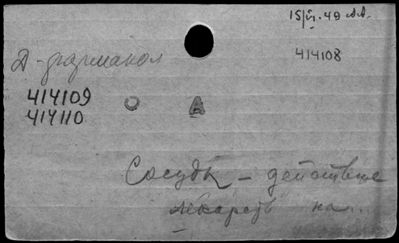 15/VI.49
414108
Д-фармакол
414109 О А
414110
Сосуды – действие
лекарств на..